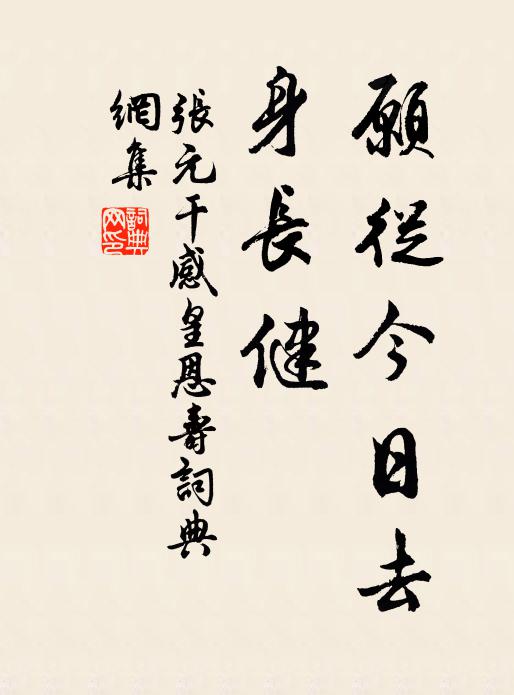 願從今日去
身長健
張元干感皇恩壽詞典
網集
詞典網印